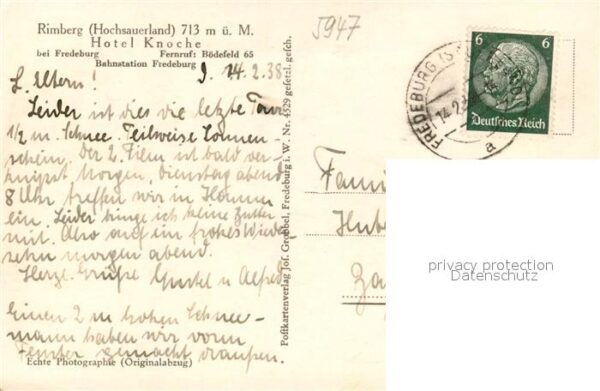 Rimberg (Hochsauerland) 713 m ü. M.
Hotel Knoche
bei Fredeburg Fernruf: Bödefeld 65
Bahnstation Fredeburg
14.2.38
L. Eltern!
Leider ist dies die letzte Tour
1/2 m. Schnee. Teilweise Sonnen-
schein. Der 2. Film ist bald ver-
knipst. Morgen, Dienstag abend
8 Uhr treffen wir in Hamm
ein. Leider bringe ich keine Butter
mit. Also auf ein frohes Wieder-
sehn morgen abend.
Herzl. Grüße Gustel u Alfred
Einen 2 m hohen Schnee-
mann haben wir vorm
Fenster gemacht draußen.
Echte Photographie (Originalabzug)
Postkartenverlag Jos. Grobbel, Fredeburg i. W. Nr. 4529 gesetzl. gesch.
5947
6 6
Deutsches Reich
FREDEBURG
14.2.
a
Fami
Hub
privacy protection
Datenschutz